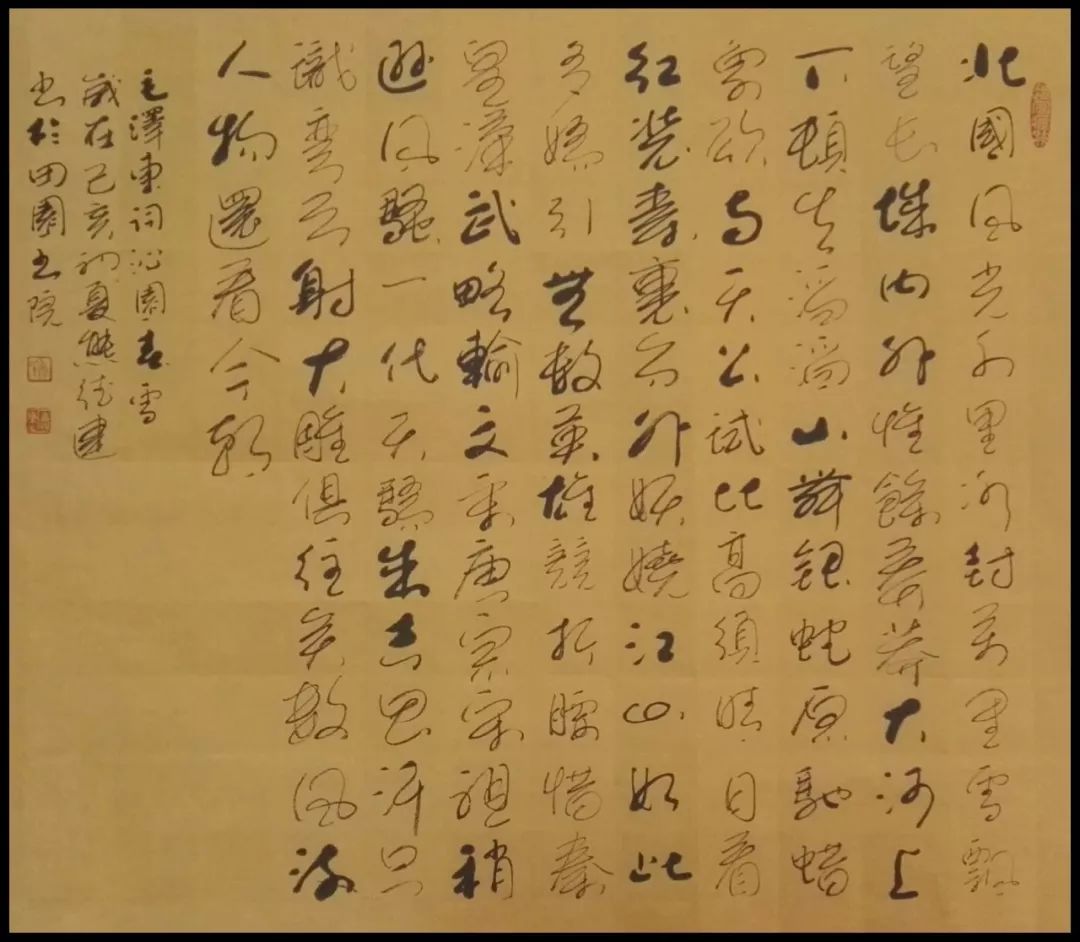 北國风光千里冰封万里雪飄
望长城内外惟餘莽莽大河上
下頓失滔滔山舞銀蛇原馳蜡
象欲与天公試比高須晴日看
紅裝素裹分外妖嬈江山如此
多嬌引無数英雄競折腰惜秦
皇漢武略輸文采唐宗宋祖稍
遜风騷一代天驕成吉思汗只
識弯弓射大雕俱往矣数风流
人物還看今朝
毛澤東词沁園春雪
歲在己亥初夏熊德建
书於田園书院